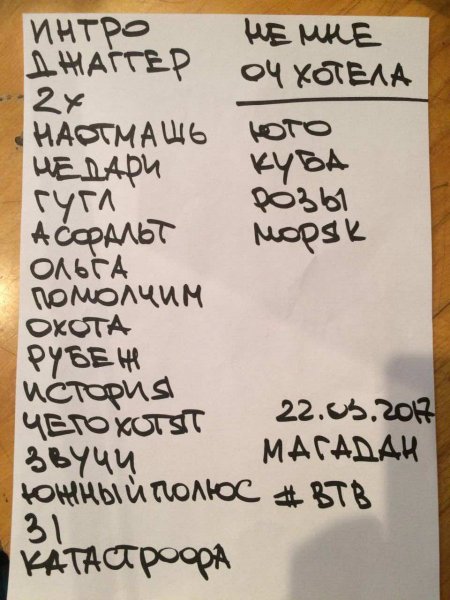 ИНТРО
ДЖАГГЕР
2Х
НАОТМАШЬ
НЕ ДАРИ
ГУГЛ
АСФАЛЬТ
ОЛЬГА
ПОМОЛЧИМ
ОХОТА
РУБЕЖ
ИСТОРИЯ
ЧЕГО ХОТЯТ
ЗВУЧИ
ЮЖНЫЙ ПОЛЮС
31
КАТАСТРОФА
НЕ МНЕ
ОЧ ХОТЕЛА
ЮГО
КУБА
РОЗЫ
МОРЯК
22.03.2017
МАГАДАН
#ВТВ